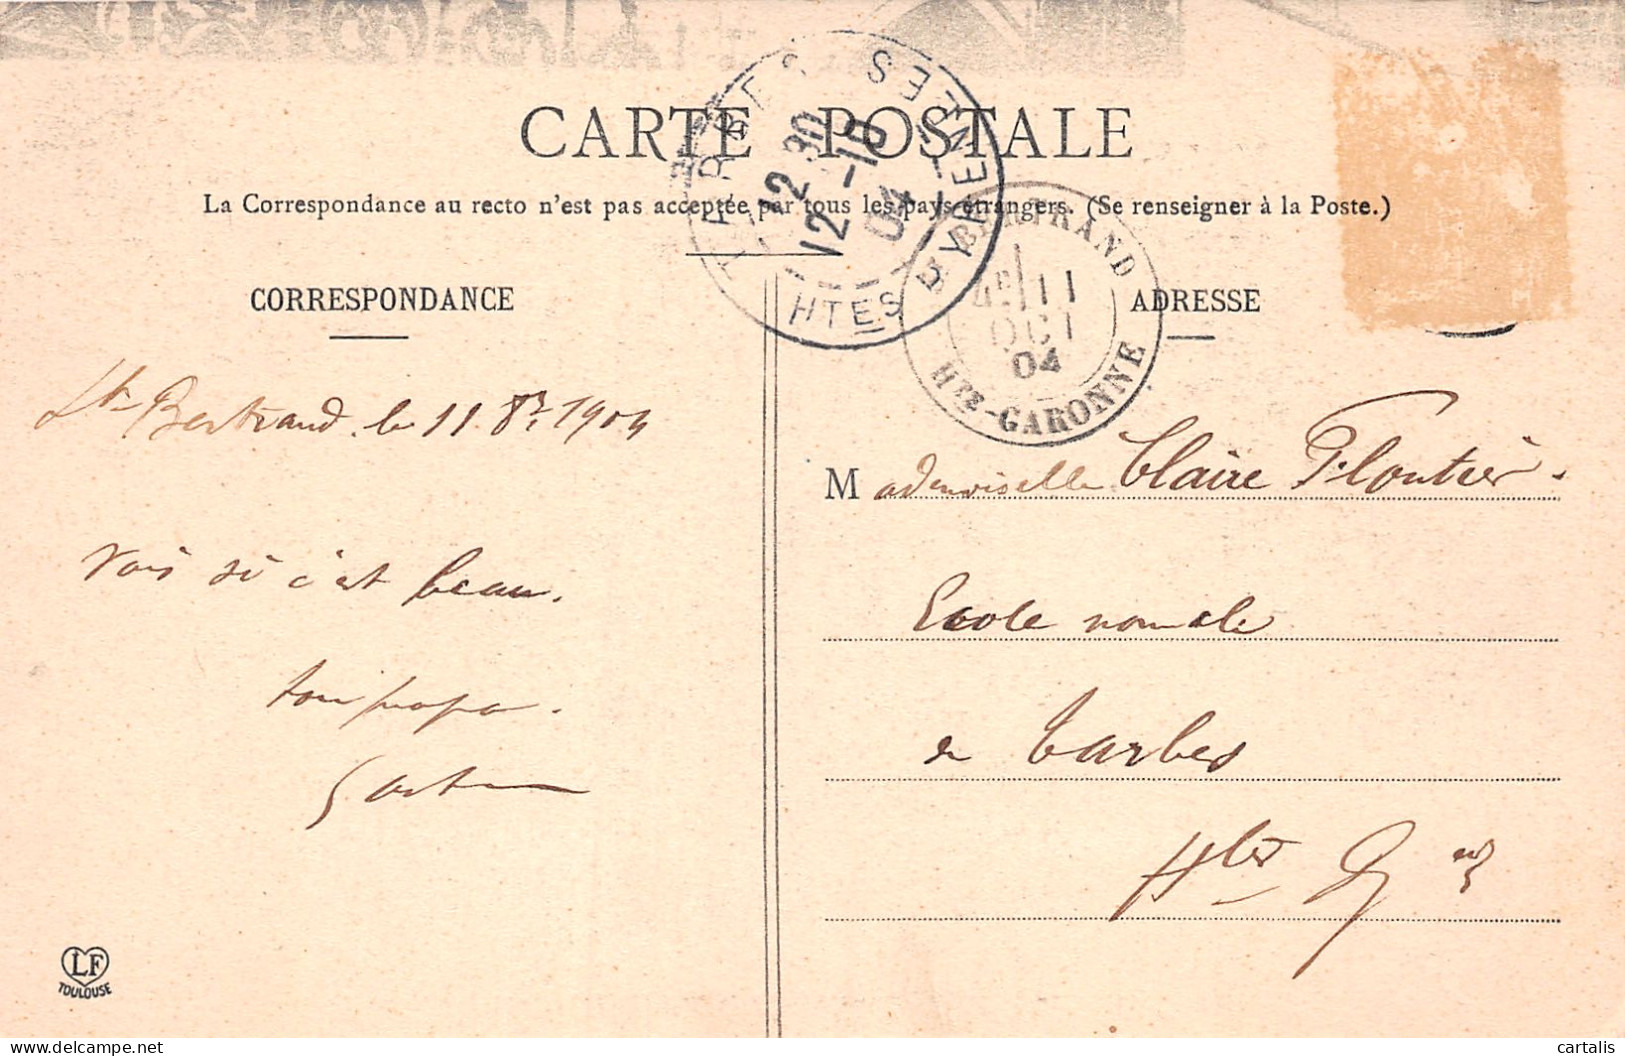 CARTE POSTALE
La Correspondance au recto n'est pas acceptée par tous les pays étrangers. (Se renseigner à la Poste.)
TARBES
HTES PYRENEES
12 30
12 -10
04
BERTRAND
11
OCT
04
HTE-GARONNE
CORRESPONDANCE
St Bertrand le 11 8bre 1904
Vois si c'est beau.
ton papa.
ADRESSE
Mademoiselle Claire Floutier.
Ecole normale
de Tarbes
Htes Pyrées
LF
TOULOUSE
cartalis
delcampe.net